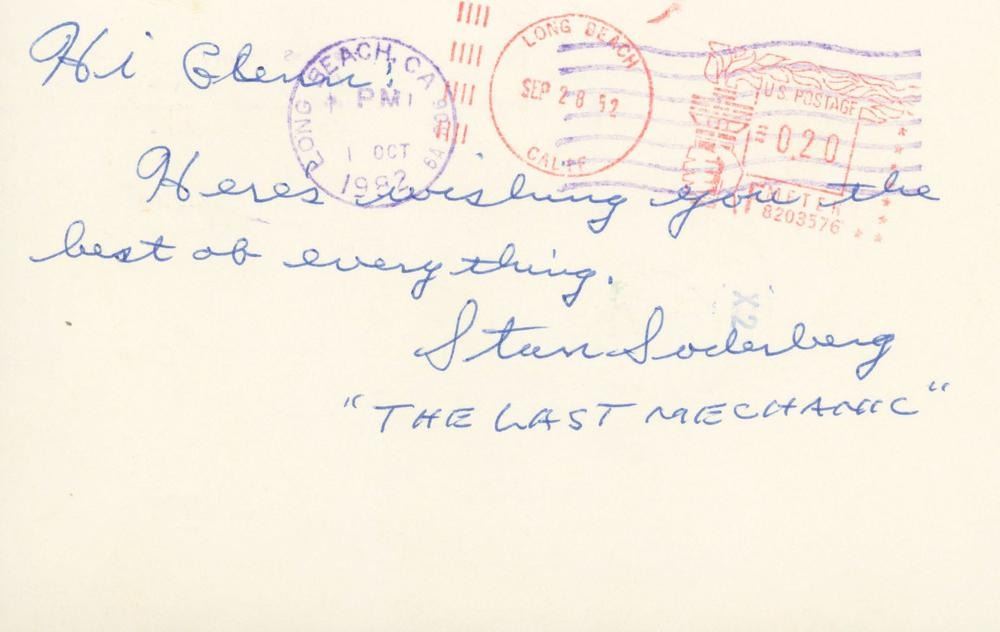 Hi Glenn!
LONG BEACH, CA
PM
1 OCT
1982
LONG BEACH
SEP 28 '82
CALIF
U.S. POSTAGE
0.20
METER
8203576
Heres wishing you the
best of everything.
Stan Soderberg
"THE LAST MECHANIC"
X2